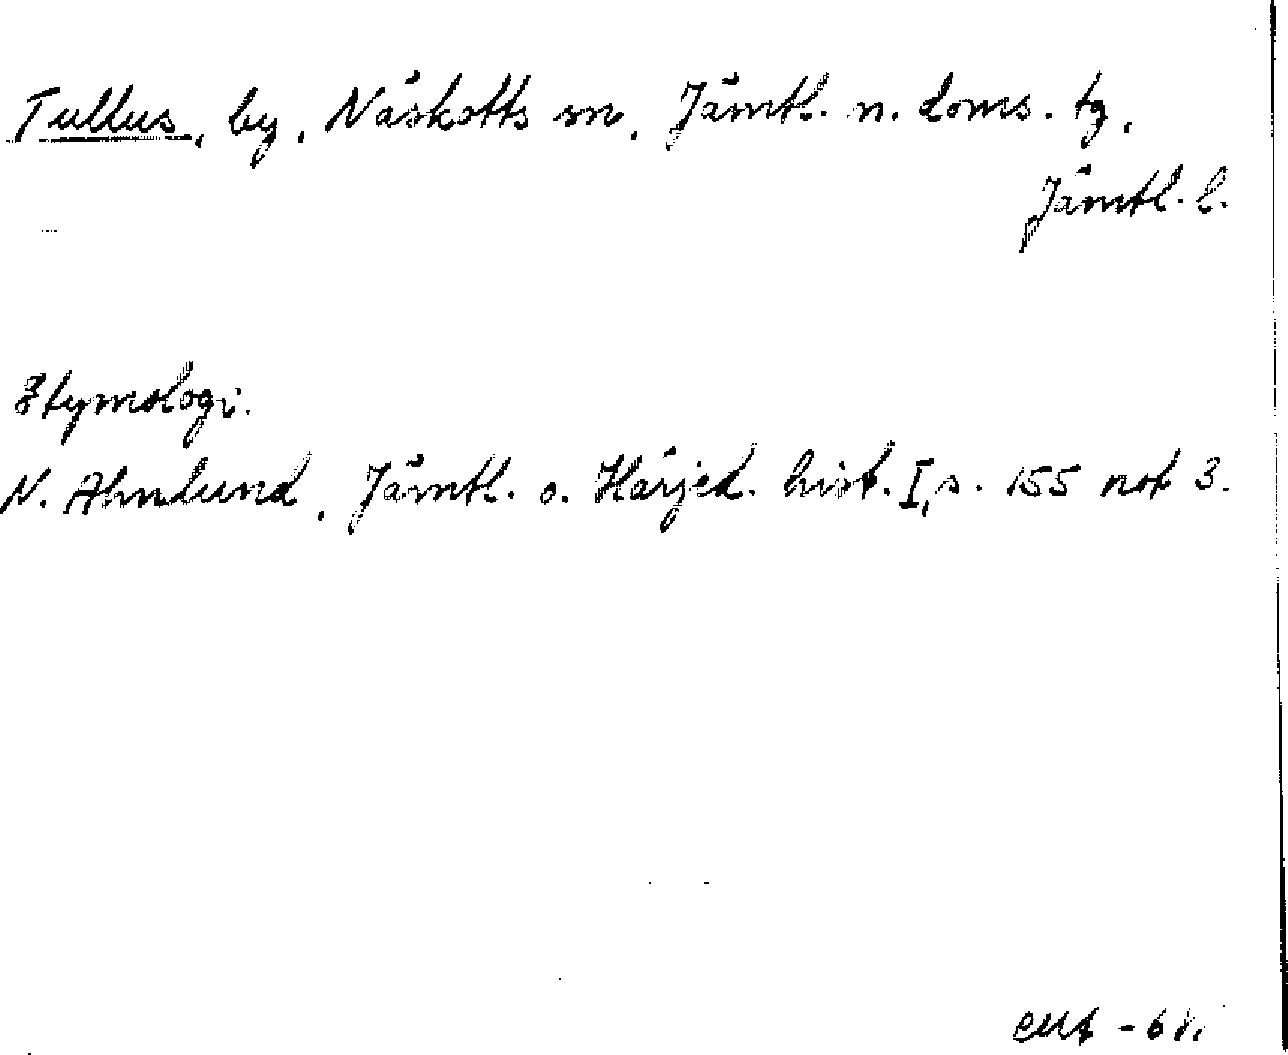 Tullus, by, Näskotts sn, Jämtl. n. doms. tg,
Jämtl. l.
Etymologi.
N. Ahnlund, Jämtl. o. Härjed. hist. I, s. 155 not 3.